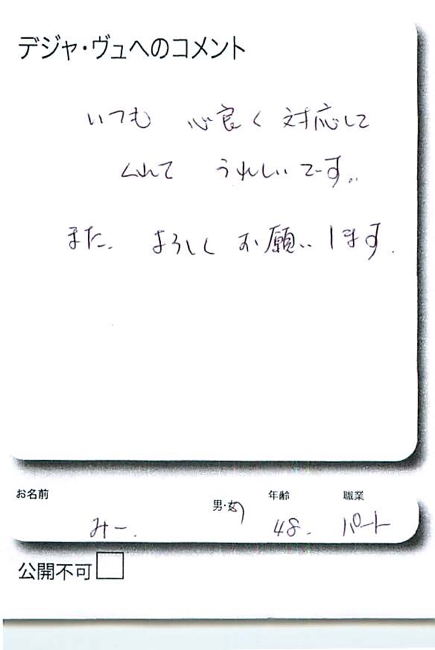 デジャ・ヴュへのコメント
いつも 心良く 対応して
くれて うれしいです。
また、よろしく お願いします。
お名前 男・女 年齢 職業
みー. 48. パート
公開不可